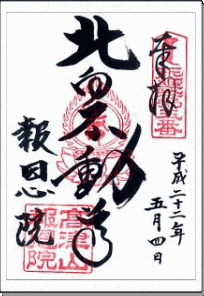 奉拝
北向不動尊
報恩院
平成二十二年
五月四日
高津山
報恩院